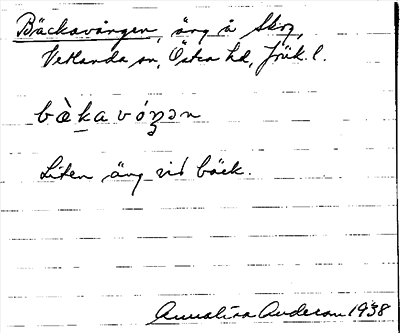 Bäckavången, äng å Skog,
Vetlanda sn, Östra hd, Jönk. l.
bὰkavóŋən
Liten äng vid bäck.
Annalisa Anderson 1938